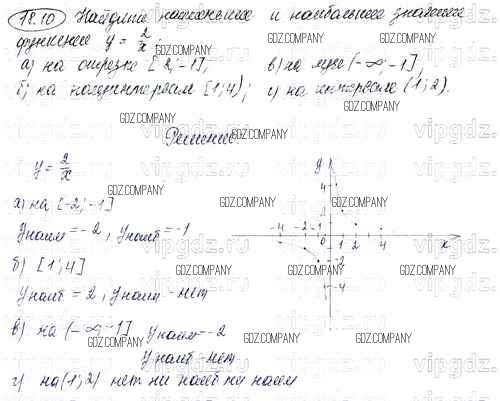 18.10 Найдите наименьшее и наибольшее значения
функции y = 2/x:
а) на отрезке [-2;-1]; в) на луче (-∞;-1];
б) на полуинтервале [1;4); г) на интервале (1;2).
Решение:
y = 2/x
а) на [-2;-1]
yнаим = -2, yнаиб = -1
б) [1;4]
yнаиб = 2, yнаим - нет
в) на (-∞;-1] yнаим = -2
yнаиб - нет
г) на (1;2) нет ни наиб ни наим
y
4
-4 -2 -1 0 1 2 4 x
-2
-4
GDZ.COMPANY
vipgdz.ru